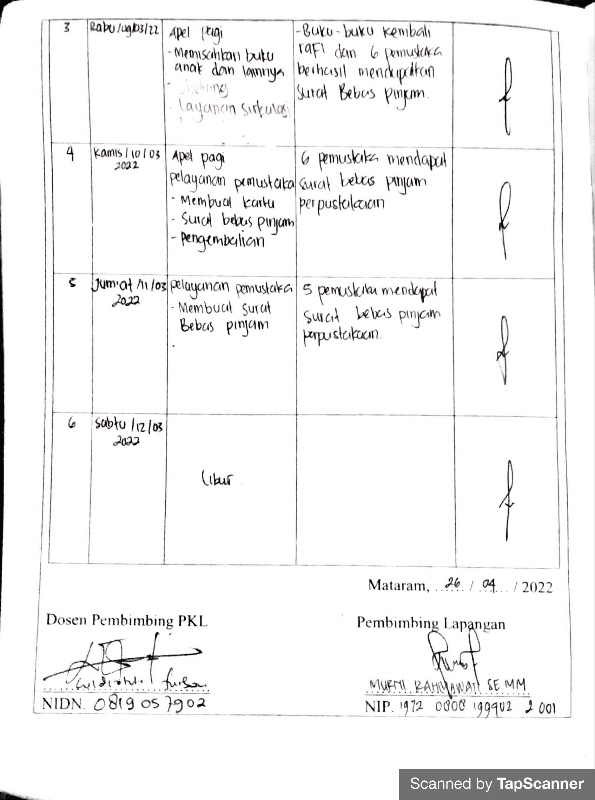 3 Rabu/09/03/22 Apel pagi
- Memisahkan buku
anak dan lainnya
- Layanan sirkulasi
- Buku-buku kembali
rafi dan 6 pemustaka
berhasil mendapatkan
surat Bebas pinjam.
4 Kamis/10/03
2022
Apel pagi
pelayanan pemustaka
- Membuat kartu
- Surat bebas pinjam
- Pengembalian
6 pemustaka mendapat
surat bebas pinjam
perpustakaan
5 Jum'at/11/03
2022
pelayanan pemustaka
- Membuat surat
Bebas pinjam
5 pemustaka mendapat
surat bebas pinjam
perpustakaan.
6 Sabtu/12/03
2022
Libur
Mataram, 26 / 04 / 2022
Dosen Pembimbing PKL
NIDN. 0819057902
Pembimbing Lapangan
RAHMAWATI SE MM
NIP. 1972 0808 199902 2 001
Scanned by TapScanner